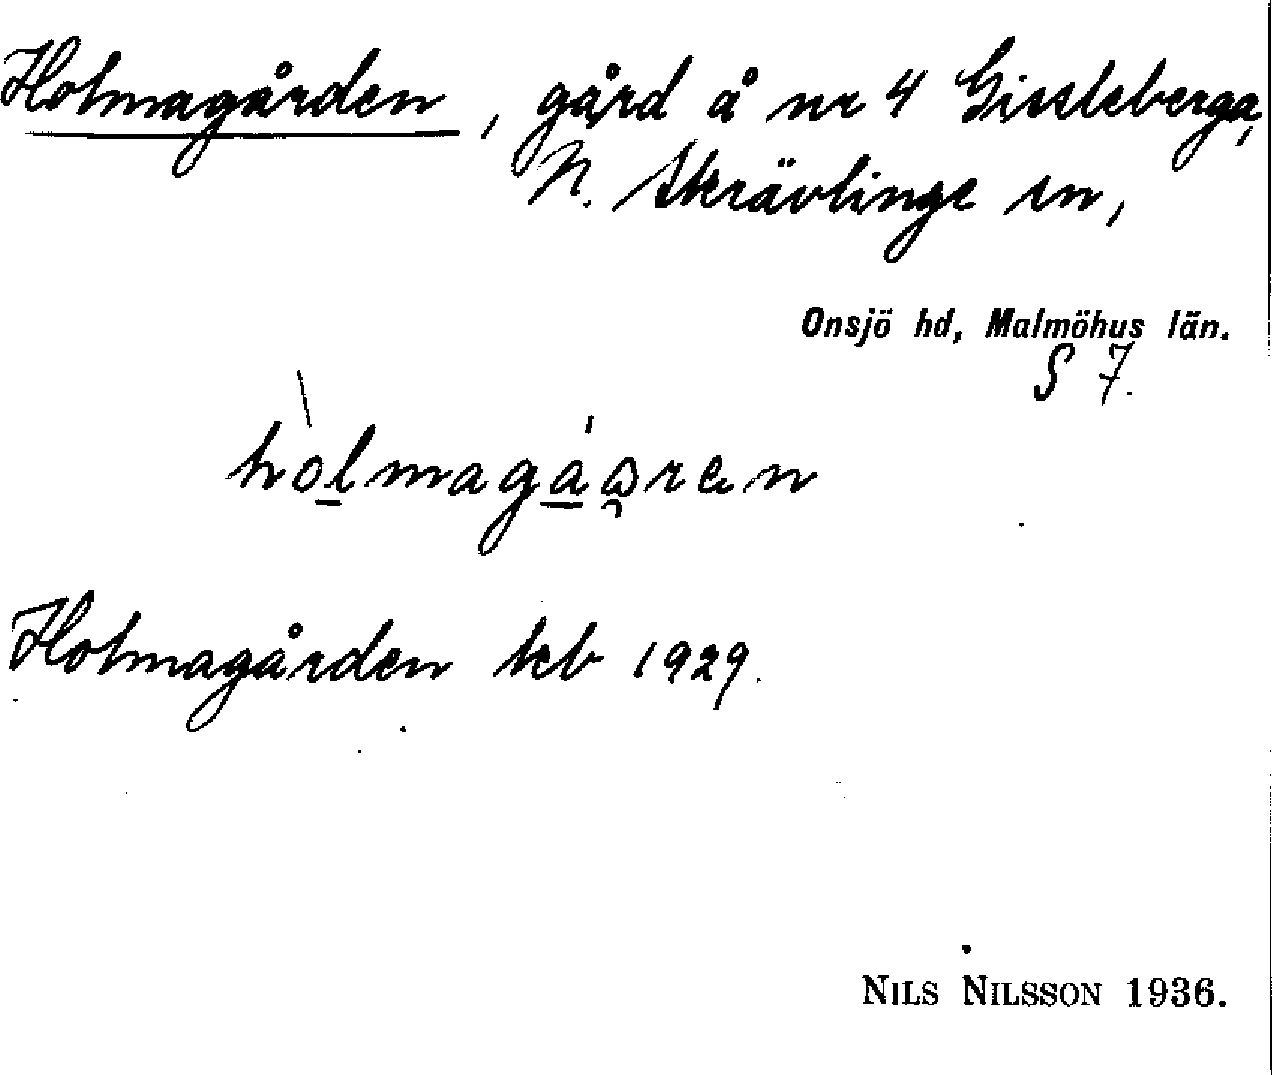 Holmagården, gård å nr 4 Gissleberga,
N. Skrävlinge sn,
Onsjö hd, Malmöhus län.
S 7.
Holmagården keb 1929.
NILS NILSSON 1936.